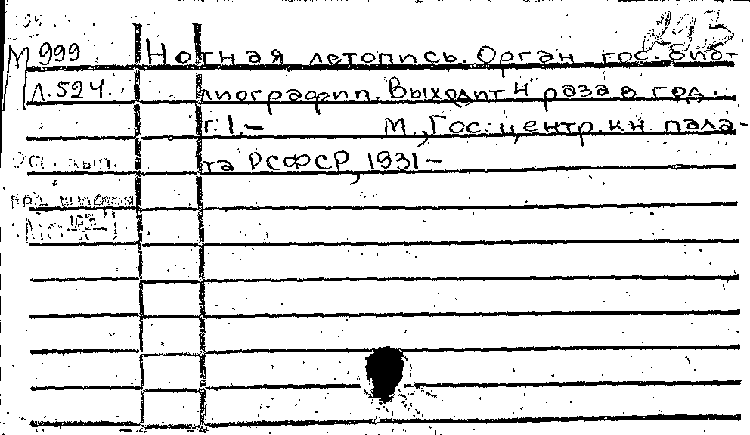 293
М 999 Нотная летопись. Орган гос. биб-
Л.524. лиографии. Выходит 4 раза в год.
г. 1,- М., Гос. центр. кн. пала-
та РСФСР, 1931-